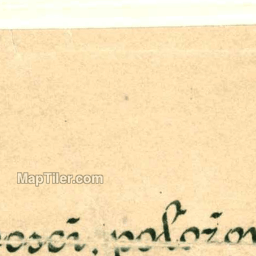 MapTiler.com
ości, położon